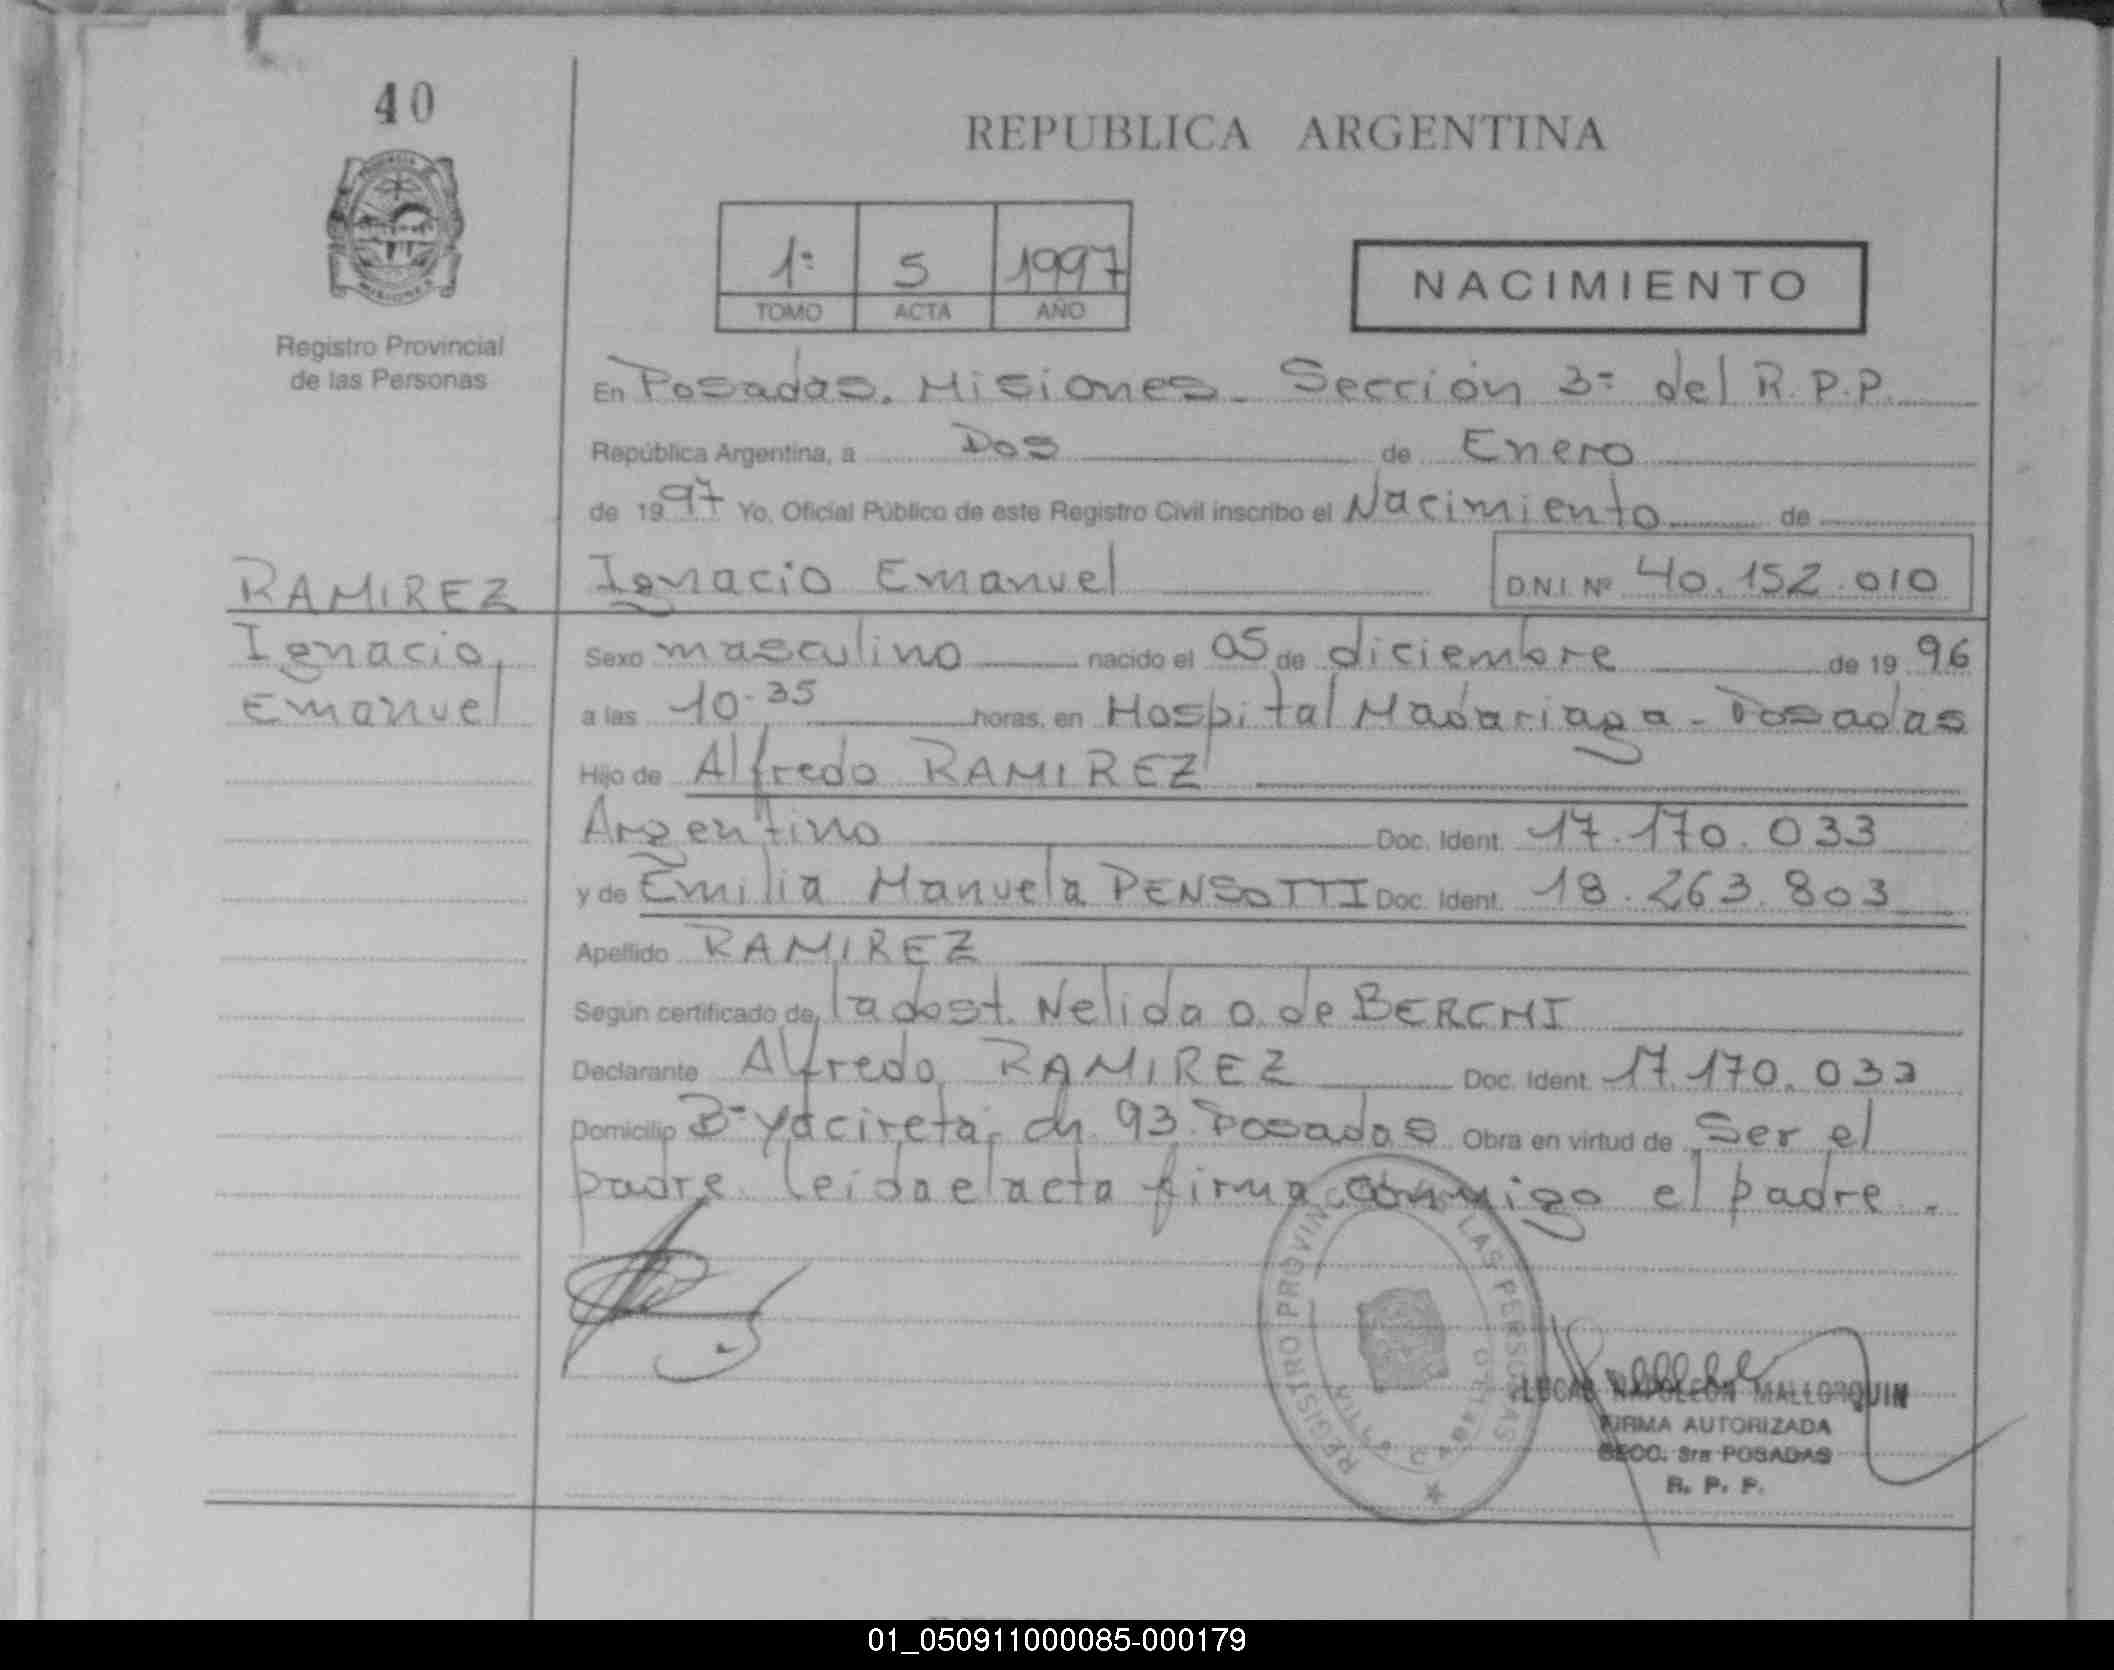 40
REPUBLICA ARGENTINA
1º 5 1997
TOMO ACTA AÑO
NACIMIENTO
Registro Provincial
de las Personas
En Posadas. Misiones. Sección 3º del R.P.P.
República Argentina, a Dos de Enero
de 1997 Yo, Oficial Público de este Registro Civil inscribo el Nacimiento de
RAMIREZ
Ignacio,
Emanuel
Ignacio Emanuel D.N.I. Nº 40.152.010
Sexo masculino nacido el 05 de diciembre de 1996
a las 10.35 horas, en Hospital Madariaga - Posadas
Hijo de Alfredo RAMIREZ
Argentino Doc. Ident. 17.170.033
y de Emilia Manuela PENSOTTI Doc. Ident. 18.263.803
Apellido RAMIREZ
Según certificado de, la dost. Nelida O. de BERCHI
Declarante Alfredo RAMIREZ Doc. Ident. 17.170.033
Domicilio Bº Yacireta, ch 93. Posadas Obra en virtud de Ser el
padre. leida el acta firma conmigo el padre.
REGISTRO PROVINCIAL DE LAS PERSONAS
LUCAS NAPOLEON MALLORQUIN
FIRMA AUTORIZADA
SECC. 3ra POSADAS
R. P. P.
01_050911000085-000179